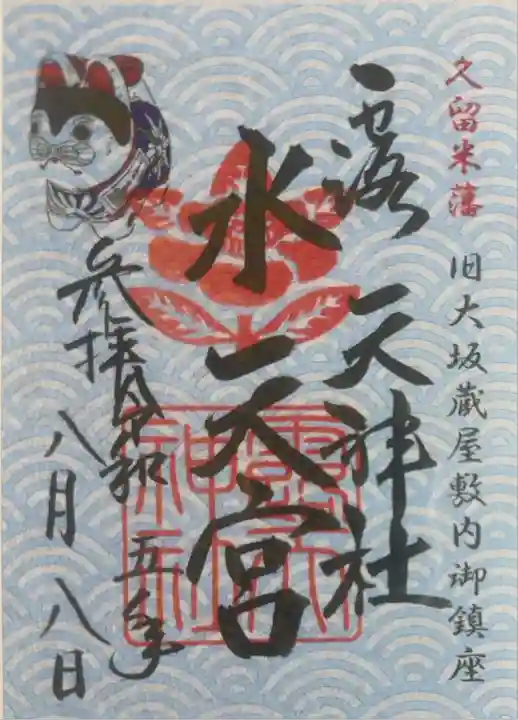 久留米藩 旧大坂蔵屋敷内御鎮座
露天神社
水天宮
参拝 令和五年
八月八日